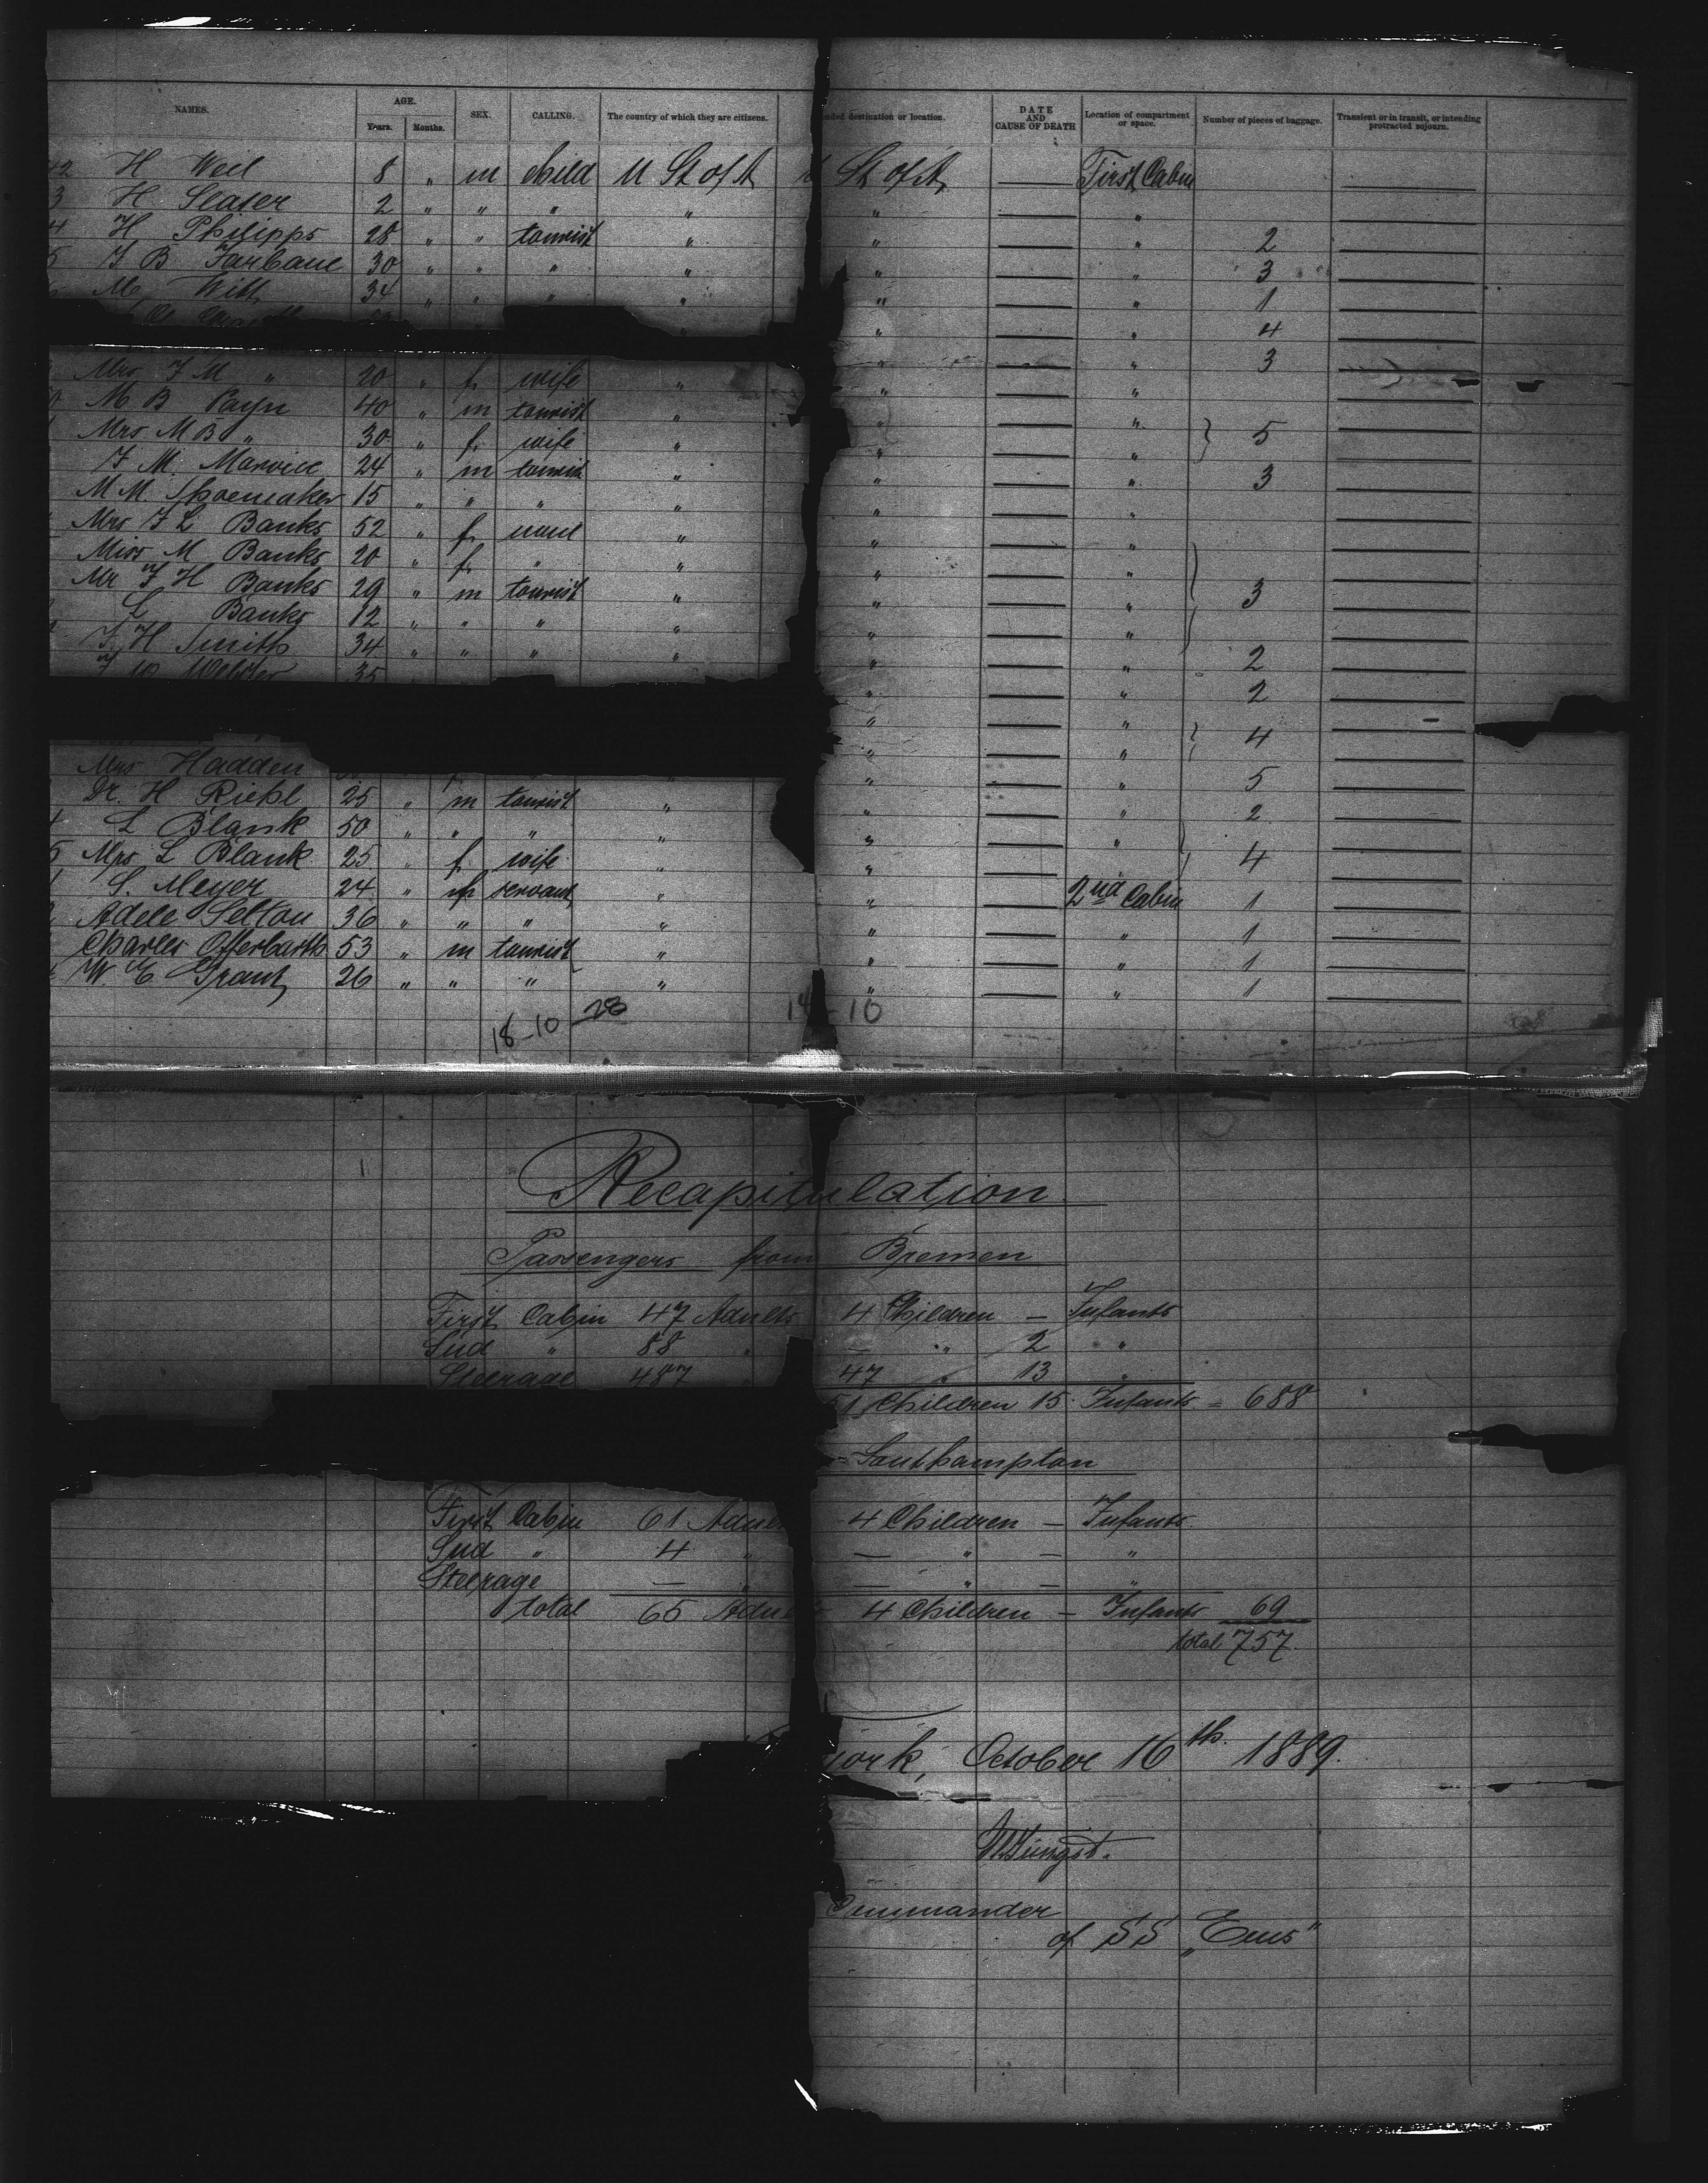 NAMES. AGE. Years. Months. SEX. CALLING. The country of which they are citizens. destination or location. DATE AND CAUSE OF DEATH Location of compartment or space. Number of pieces of baggage. Transient or in transit, or intending protracted sojourn.
42 H Weil 8 " m child U St of A St of A — First Cabin —
3 H Seater 2 " " " " " — " —
4 H Philipps 28 " " tourist " " — " 2 —
5 J B Farbane 30 " " " " " — " 3 —
M Witt 34 " " " " " — " 1 —
" " — " 4 —
" — " 3 —
Mrs J M " 20 " f. wife " " — " —
M B Payn 40 " m tourist " " — "
Mrs M B " 30 " f. wife " " — " } 5 —
J M. Marvice 24 " m tourist " " — " 3 —
M M. Shoemaker 15 " " " " " — " —
Mrs J L Banks 52 " f. none " " — " —
Miss M Banks 20 " f. " " " — " —
Mr J H Banks 29 " m tourist " " — " 3 —
L Banks 12 " " " " " — " —
J. H Smith 34 " " " " " — " 2 —
J W Webster 35 " — " 2 —
" — " } 4 —
Mrs Hadden " — " 5 —
Dr. H Riehl 25 " m tourist " " — " 2 —
L Blank 50 " " " " " — " —
5 Mrs L Blank 25 " f. wife " " — " } 4 —
1 S. Meyer 24 " servant " " — 2nd Cabin 1 —
2 Adele Selton 36 " " " " " — " 1 —
Charles Offerbarth 53 " m tourist " " — " 1 —
W. E Grant 26 " " " " " — " 1 —
18-10 28 14-10
Recapitulation
Passengers from Bremen
First Cabin 47 Adults 4 Children — Infants
2nd " 88 " — " 2 "
Steerage 487 " 47 " 13 "
51 Children 15 Infants = 688
Southampton
First Cabin 61 Adults 4 Children — Infants
2nd " 4 " — " — "
Steerage — " — " — "
total 65 Adults 4 Children — Infants 69
total 757
York, October 16th. 1889.
Commander
of SS „Ems"